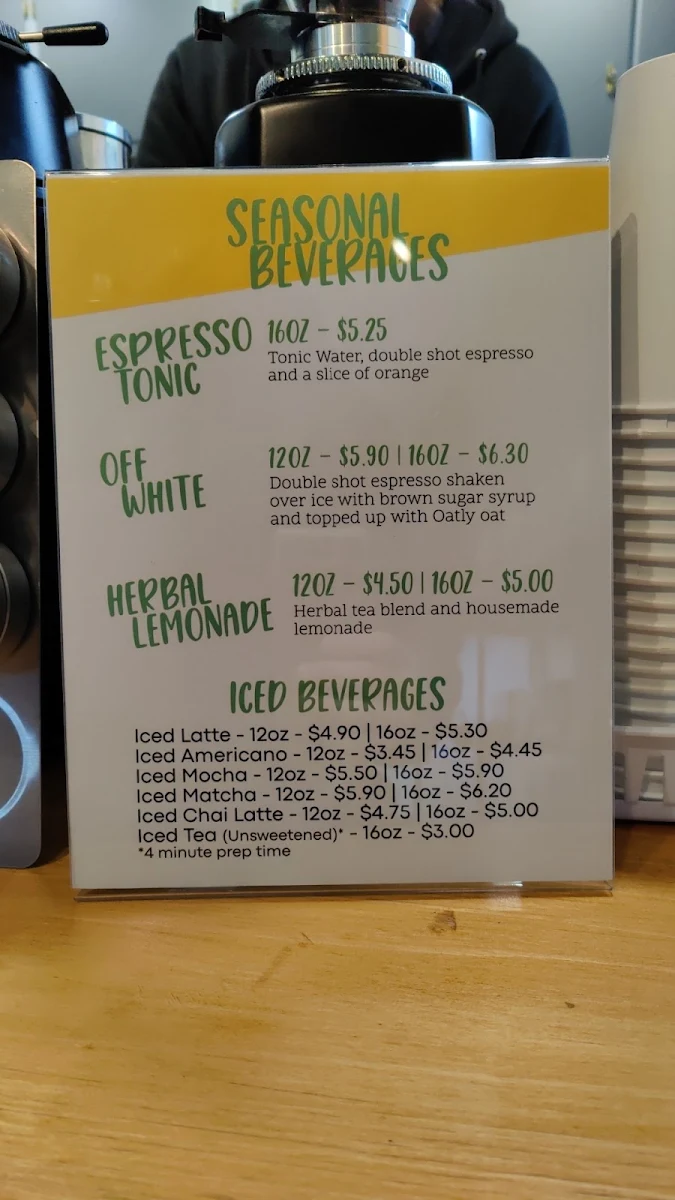 SEASONAL
BEVERAGES
ESPRESSO
TONIC
16OZ - $5.25
Tonic Water, double shot espresso
and a slice of orange
OFF
WHITE
12OZ - $5.90 | 16OZ - $6.30
Double shot espresso shaken
over ice with brown sugar syrup
and topped up with Oatly oat
HERBAL
LEMONADE
12OZ - $4.50 | 16OZ - $5.00
Herbal tea blend and housemade
lemonade
ICED BEVERAGES
Iced Latte - 12oz - $4.90 | 16oz - $5.30
Iced Americano - 12oz - $3.45 | 16oz - $4.45
Iced Mocha - 12oz - $5.50 | 16oz - $5.90
Iced Matcha - 12oz - $5.90 | 16oz - $6.20
Iced Chai Latte - 12oz - $4.75 | 16oz - $5.00
Iced Tea (Unsweetened)* - 16oz - $3.00
*4 minute prep time